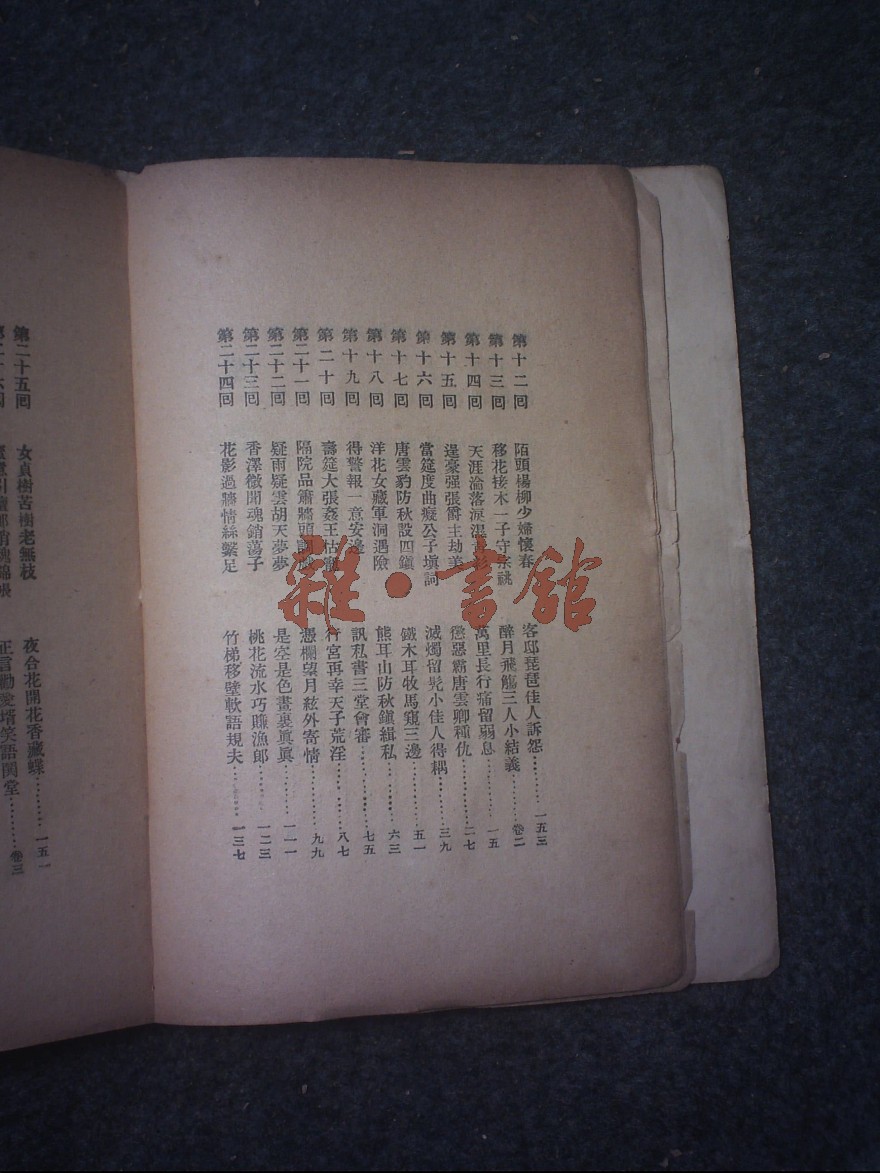 第十二回 陌頭楊柳少婦懷春 客邸琵琶佳人訴怨………一五三
第十三回 移花接木一子守宗祧 醉月飛觴三人小結義………卷二
第十四回 天涯淪落淚濕青衫 萬里長行痛留弱息………一五
第十五回 逞豪强張爵主劫美 懲惡霸唐雲卿種仇………二七
第十六回 當筵度曲癡公子塡詞 滅燭留髡小佳人得耦………三九
第十七回 唐雲豹防秋設四鎭 鐵木耳牧馬窺三邊………五一
第十八回 洋花女藏軍洞遇險 熊耳山防秋鎭緝私………六三
第十九回 得警報一意安邊 訊私書三堂會審………七五
第二十回 壽筵大張姦王怙寵 行宮再幸天子荒淫………八七
第二十一回 隔院品簫牆頭 憑欄望月絃外寄情………九九
第二十二回 疑雨疑雲胡天夢夢 是空是色畫裏眞眞………一一一
第二十三回 香澤微聞魂銷蕩子 桃花流水巧賺漁郎………一二三
第二十四回 花影過牆情絲繫足 竹梯移壁軟語規夫………一三七
第二十五回 女貞樹苦樹老無枝 夜合花開花香藏蝶………一五一
正言勸愛壻笑語閧堂………卷三
雜·書館